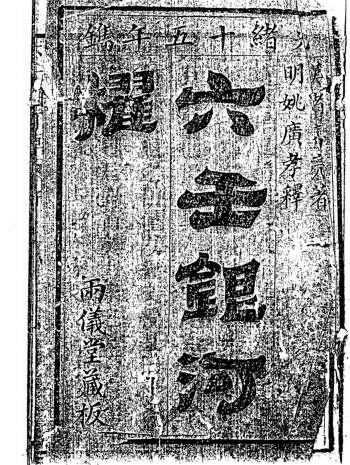 光緒十五年鐫
著
明姚廣孝釋
六壬銀河
櫂
兩儀堂藏板